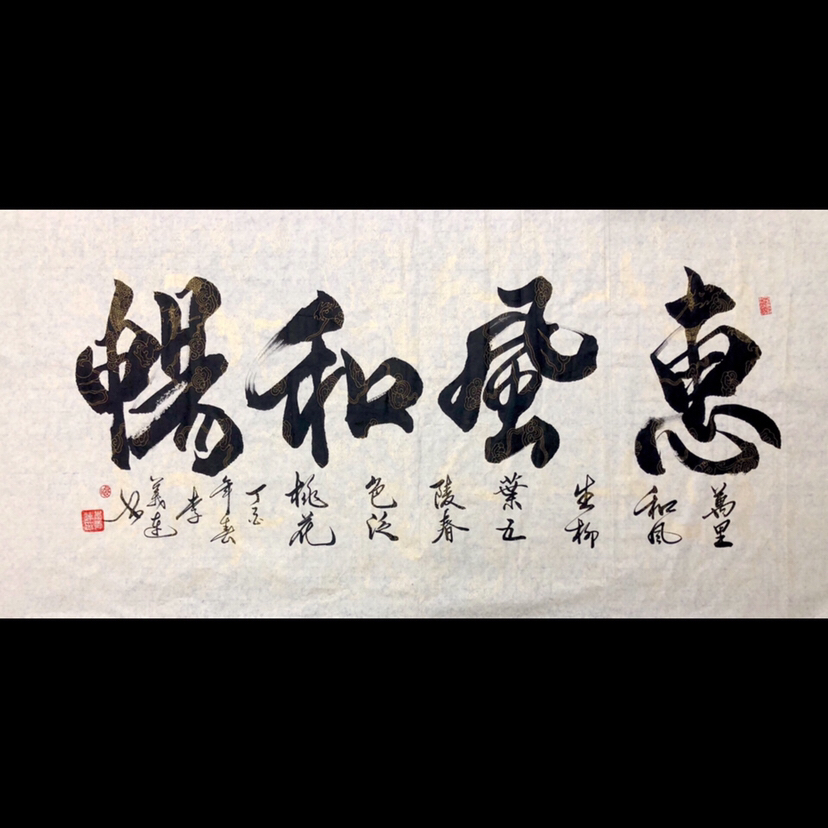 惠風和暢
萬里
和風
生柳
葉五
陵春
色泛
桃花
丁酉
年春
李
義連
書